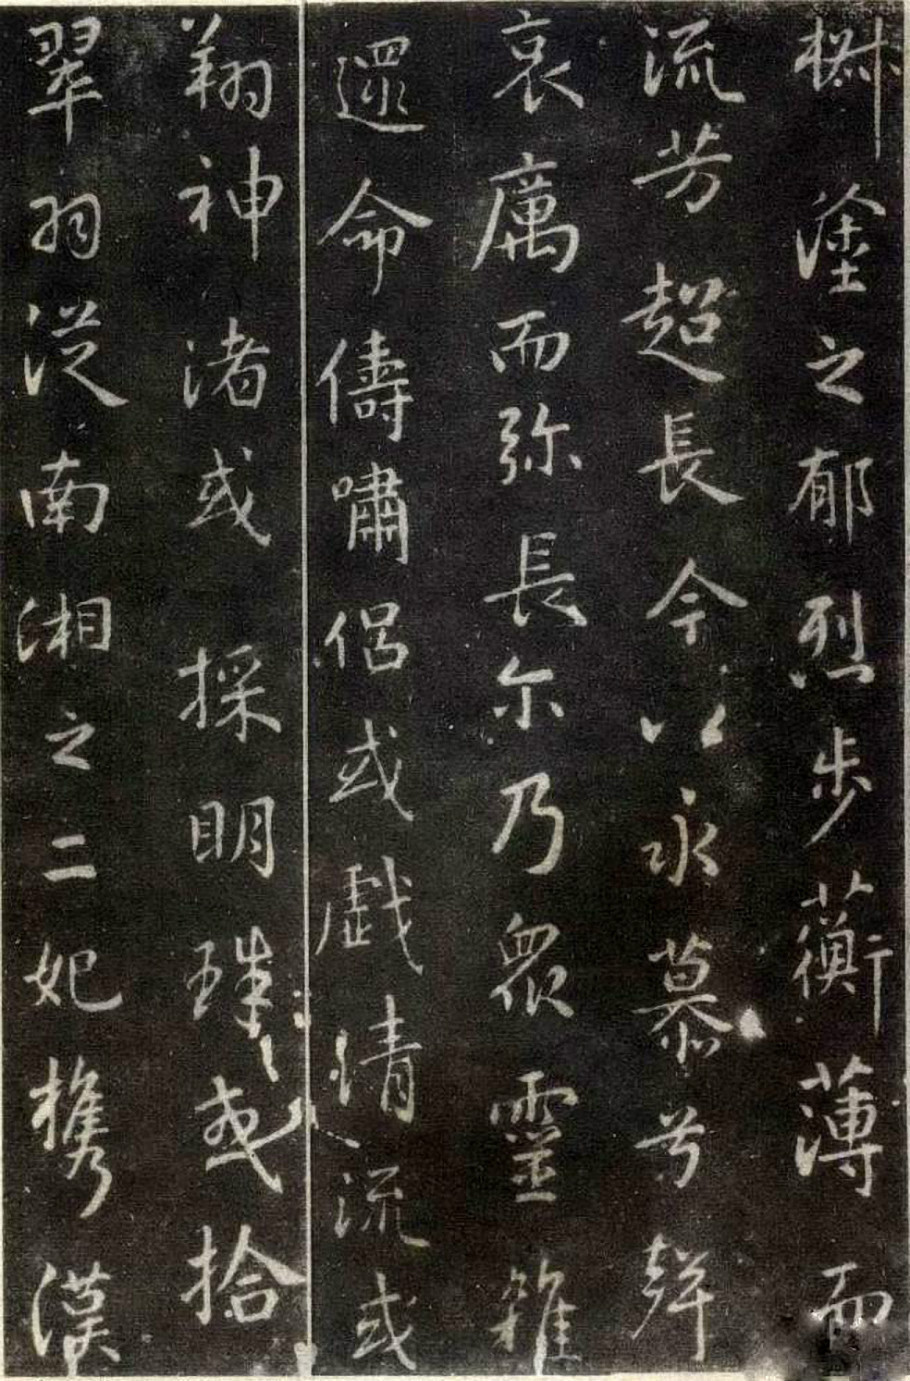 椒塗之郁烈步蘅薄而
流芳超長吟以永慕兮聲
哀厲而弥長尔乃眾靈雜
遝命儔嘯侶或戲清流或
翔神渚或採明珠或拾
翠羽從南湘之二妃攜漢